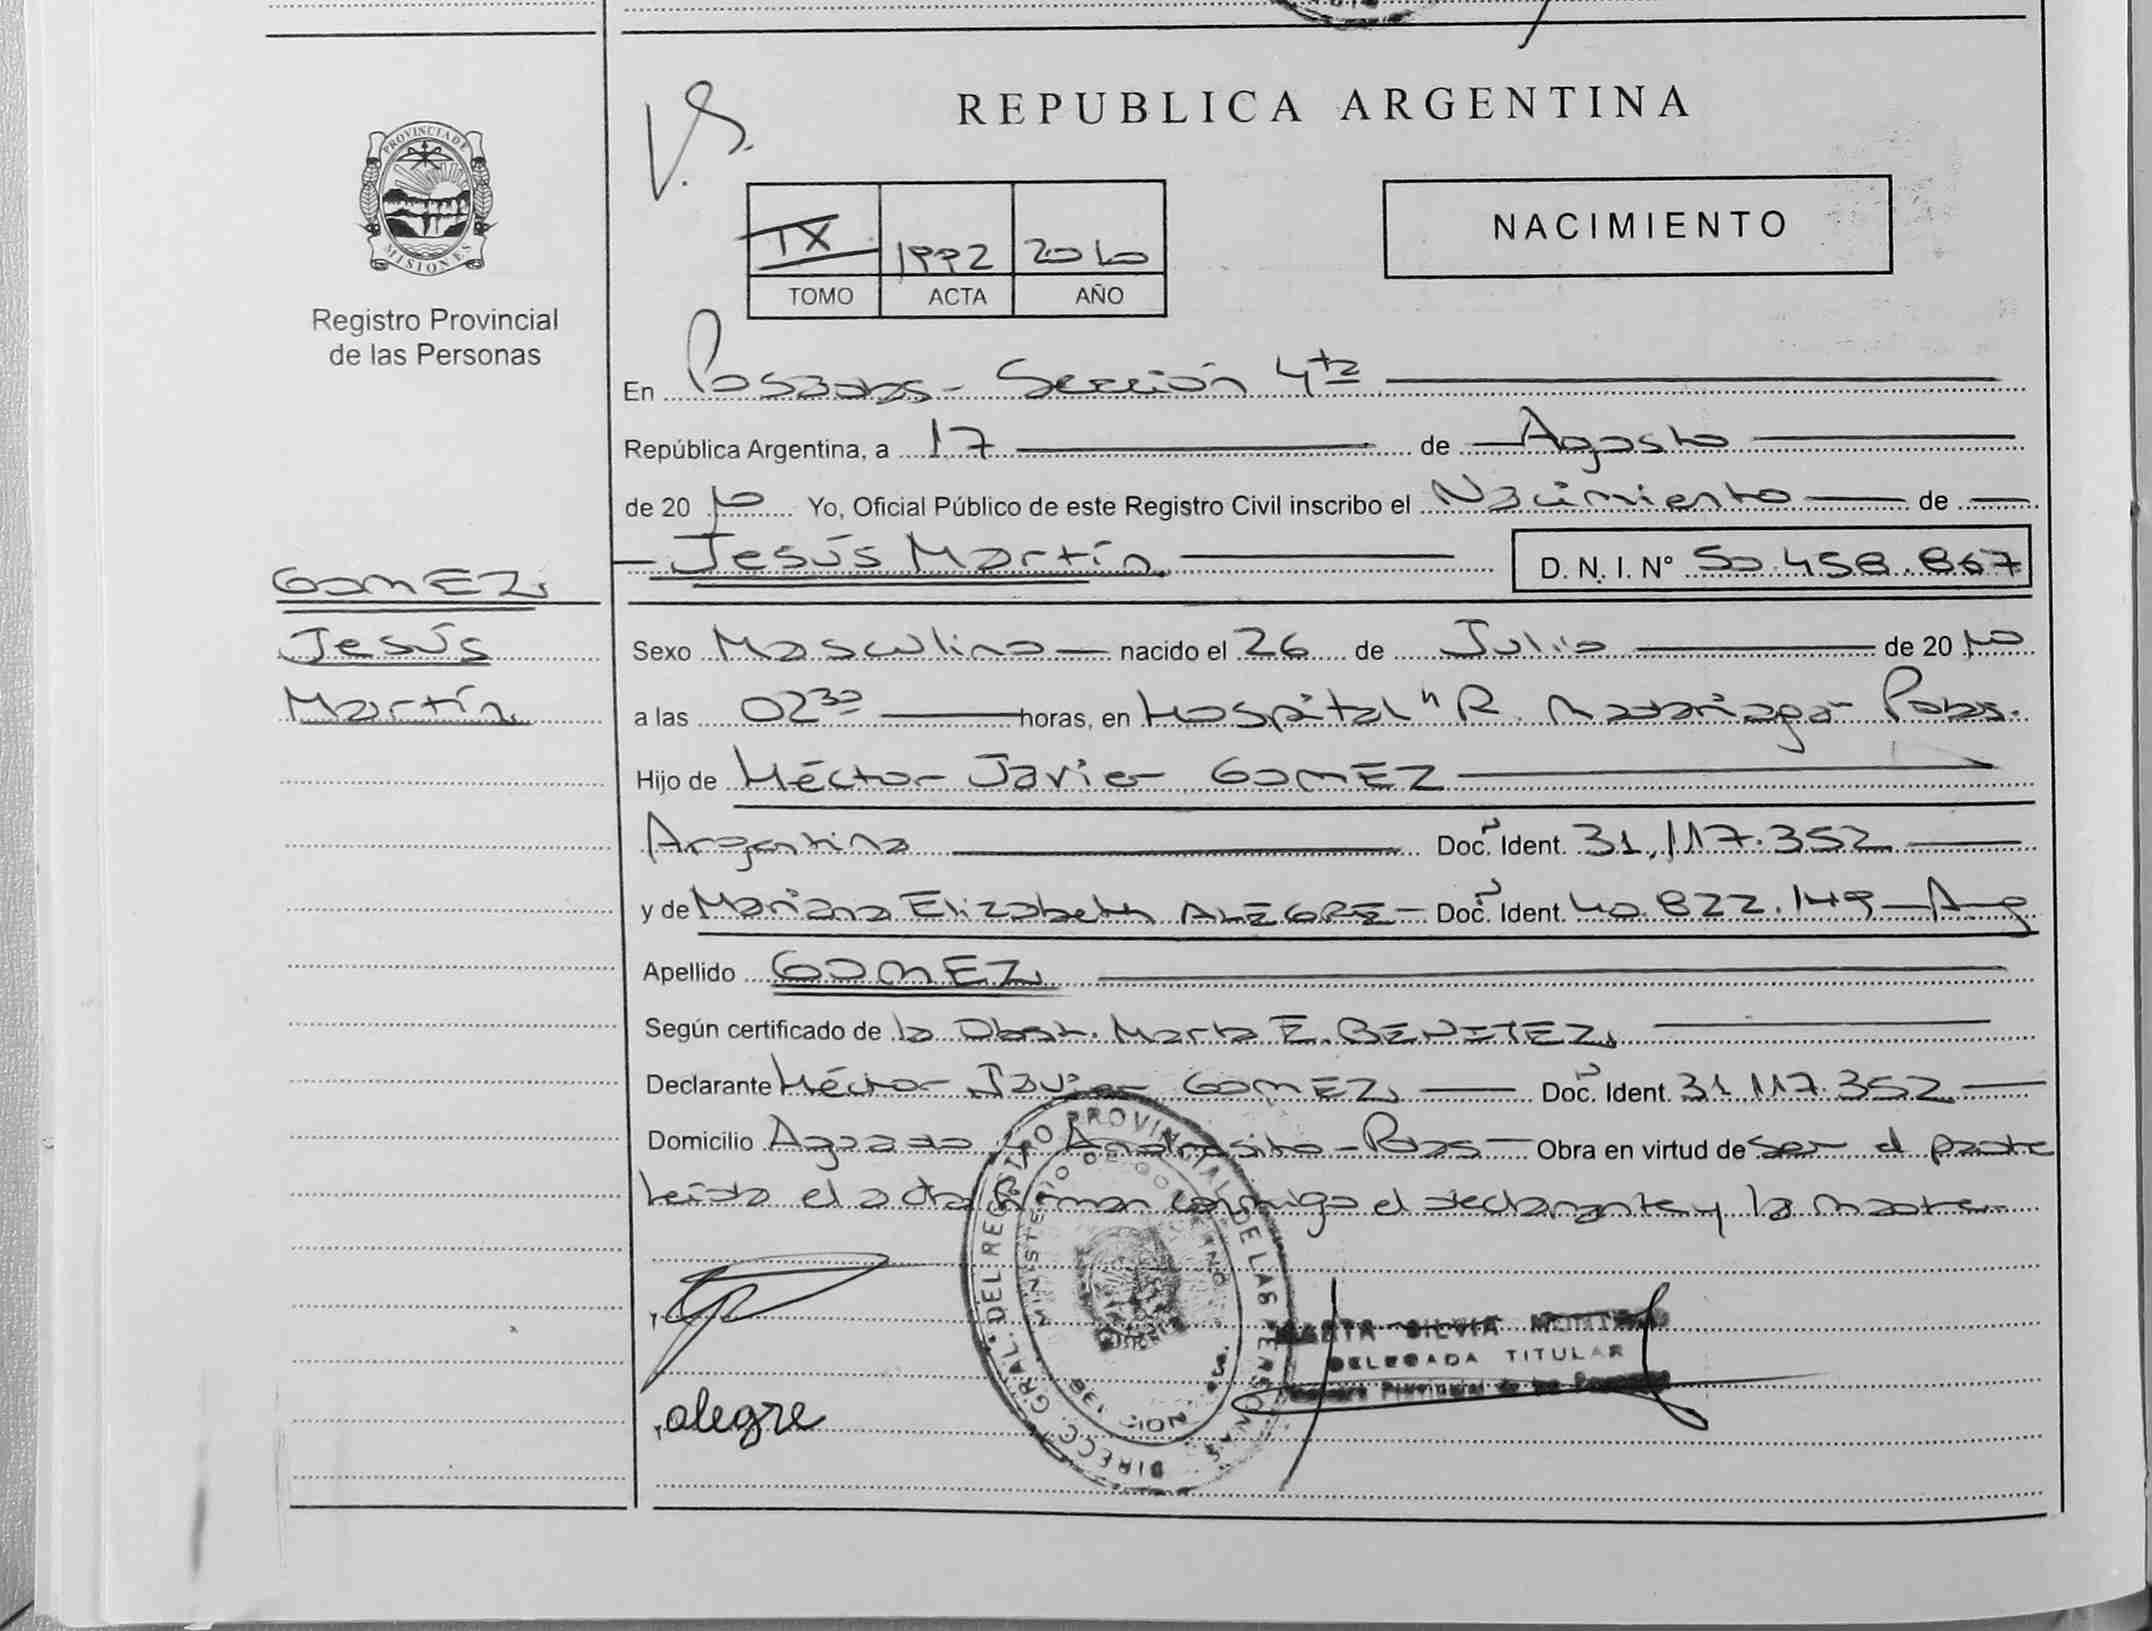 PROVINCIA DE
MISIONES
Registro Provincial
de las Personas
GOMEZ,
Jesús
Martín
V.S.
REPUBLICA ARGENTINA
IX 1992 2010
TOMO ACTA AÑO
NACIMIENTO
En Posadas - Sección 4ta
República Argentina, a 17 de Agosto
de 2010 Yo, Oficial Público de este Registro Civil inscribo el Nacimiento de
Jesús Martín D. N. I. N° 50.458.867
Sexo Masculino nacido el 26 de Julio de 2010
a las 02 30 horas, en Hospital "R. Madariaga - Pdas.
Hijo de Héctor Javier GOMEZ
Argentino Doc. Ident. 31.117.352
y de Mariana Elizabeth ALEGRE - Doc. Ident. 40.822.149 - Arg
Apellido GOMEZ,
Según certificado de la Obst. Marta E. BENITEZ,
Declarante Héctor Javier GOMEZ, Doc. Ident. 31.117.352
Domicilio Aguado y Andresito - Pdas - Obra en virtud de ser el padre
leída el acta firman conmigo el declarante y la madre
DIRECC. GRAL. DEL REGISTRO PROVINCIAL DE LAS PERSONAS
MINISTERIO DE GOBIERNO
alegre
MARTA SILVIA
DELEGADA TITULAR
Registro Provincial de las Personas